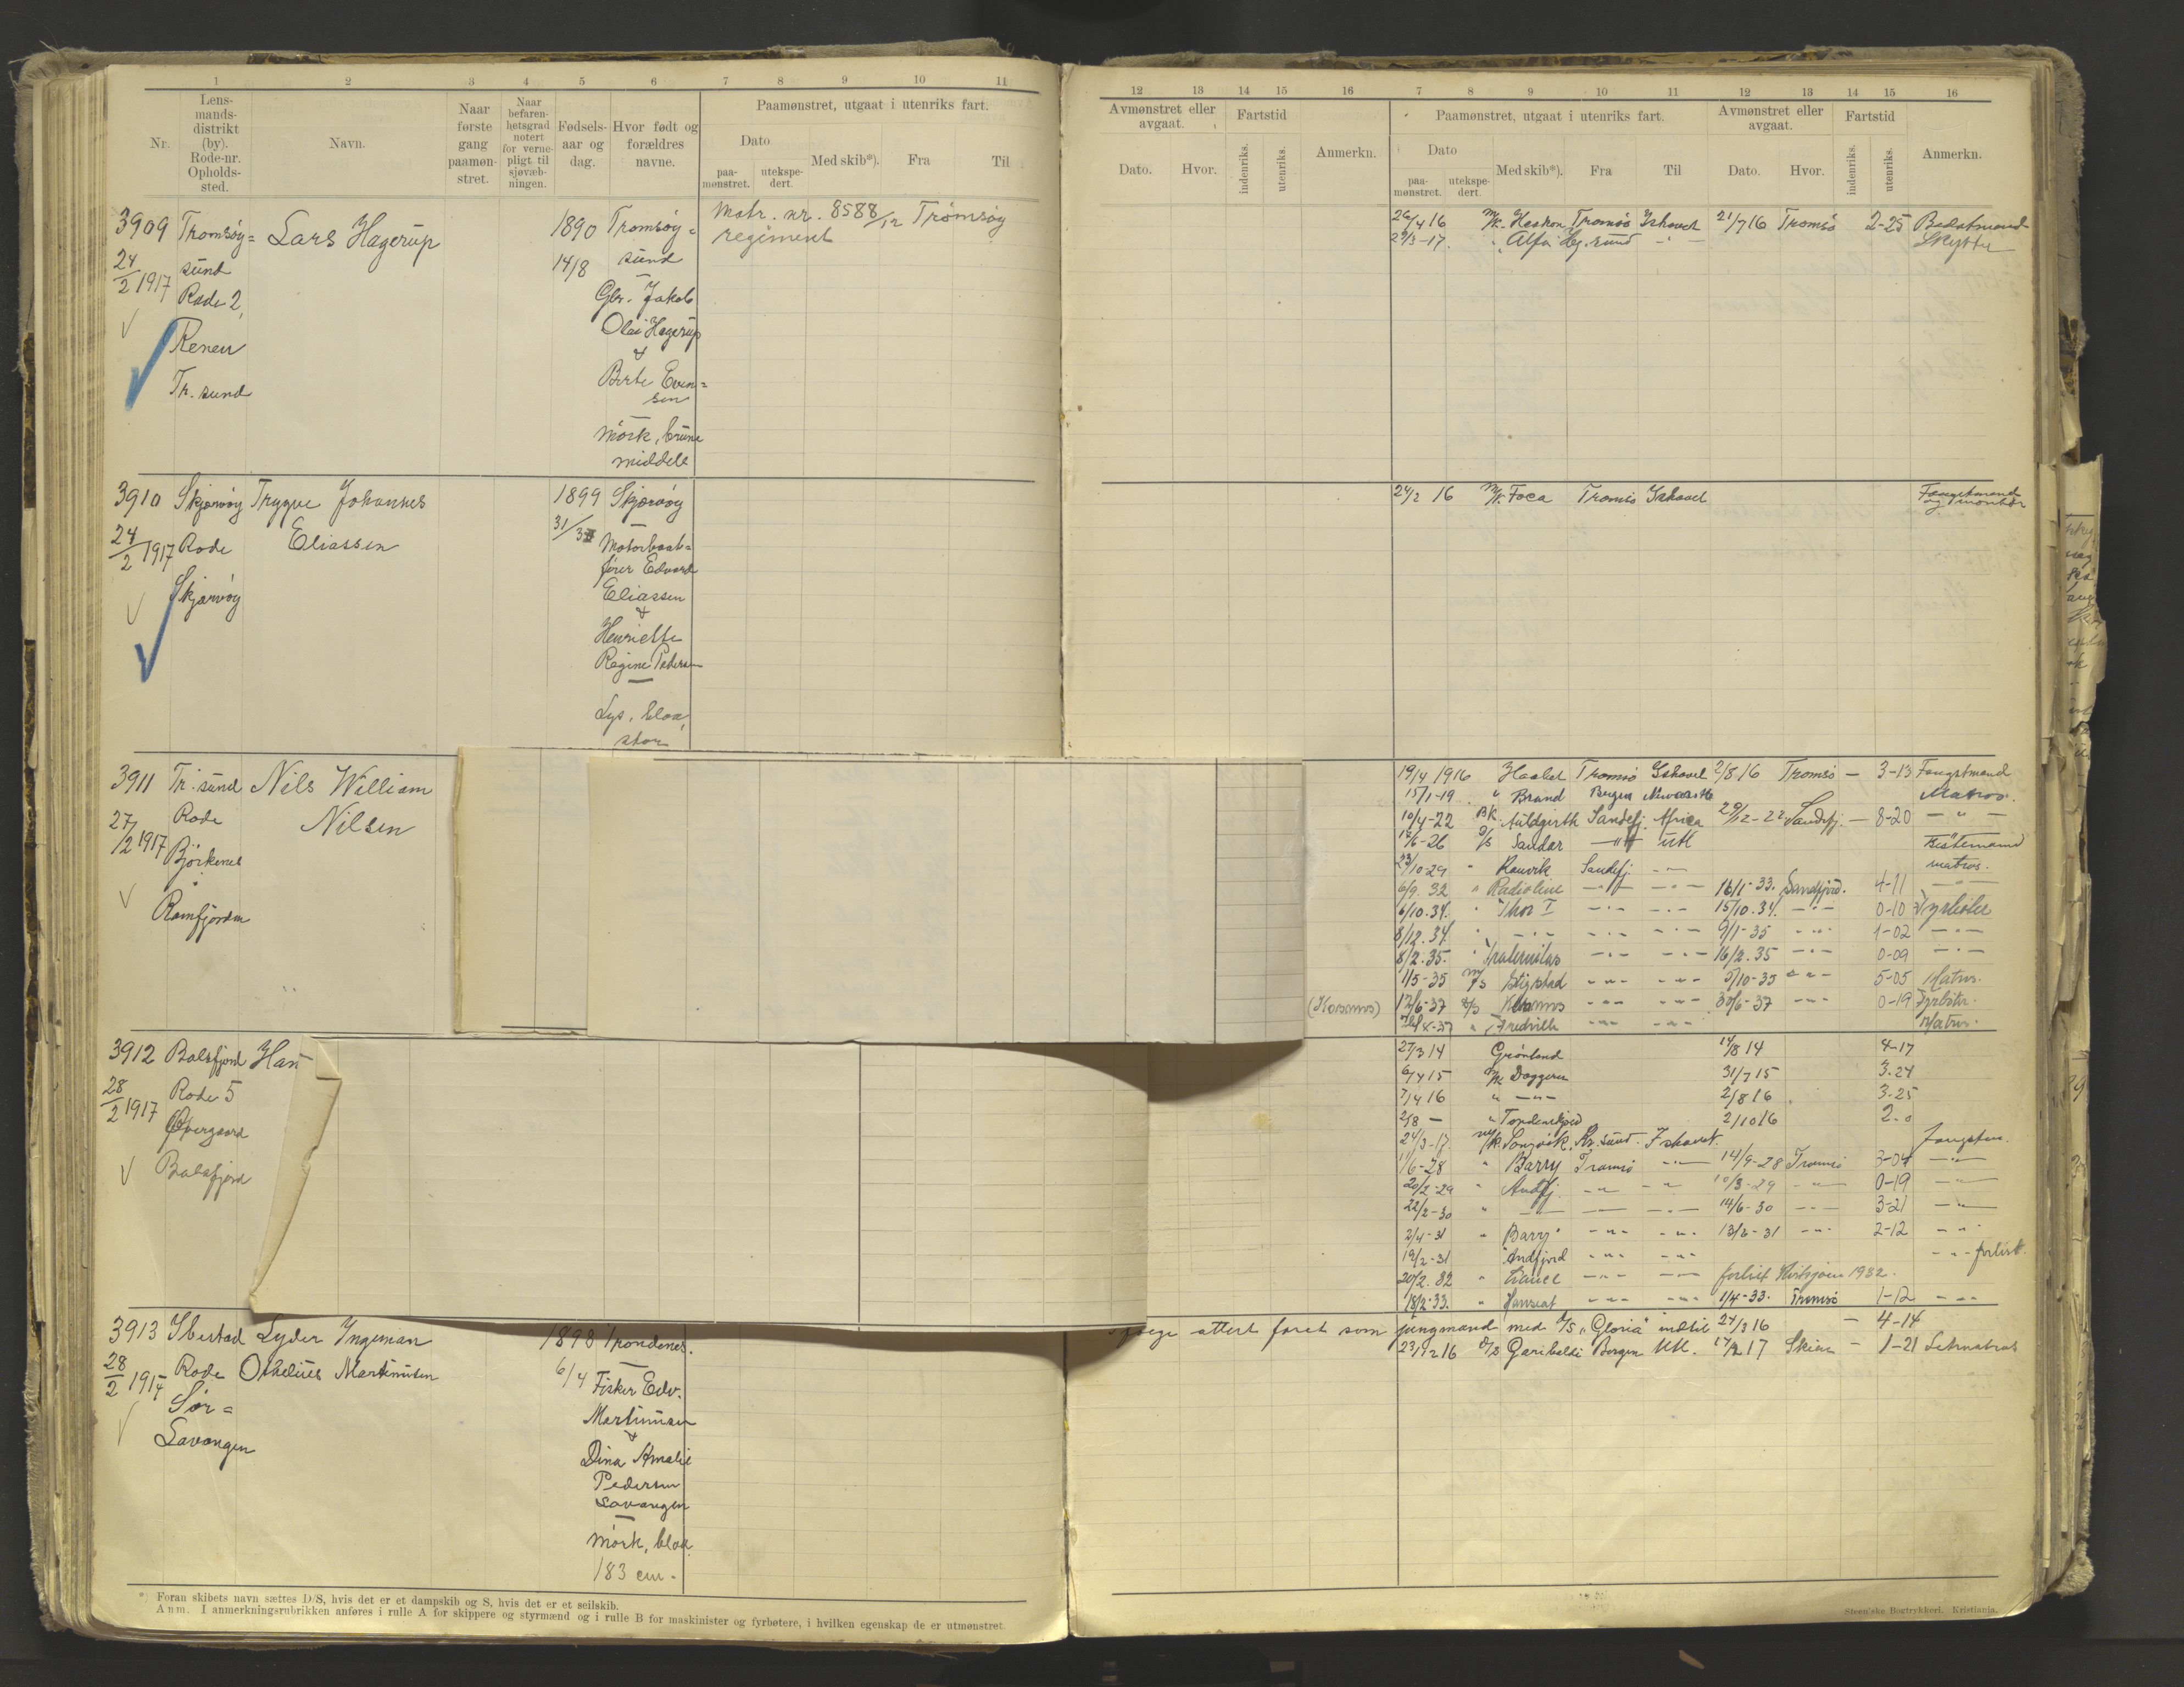 1 2 3 4 5 6 7 8 9 10 11
Nr.
Lens-
mands-
distrikt
(by).
Rode-nr.
Opholds-
sted.
Navn.
Naar
første
gang
paamøn-
stret.
Naar
befaren-
hetsgrad
notert
for verne-
pligt til
sjøvæb-
ningen.
Fødsels-
aar og
dag.
Hvor født og
forældres
navne.
Paamønstret, utgaat i utenriks fart.
Dato
paa-
mønstret.
utekspe-
dert.
Med skib*).
Fra
Til
3909 Tromsöy= Lars Hagerup 1890 Tromsöy=
24/2 1917 sund 14/8 sund
Rode 2,
Renen
Tr. sund
Gbr. Jakob
Olai Hagerup
&
Berte Even=
sen
mörk, brune
middels
Matr. nr. 8588/12 Tromsöy
regiment
3910 Skjærvöy Trygve Johannes 1899 Skjærvöy
24/2 1917 Rode Eliassen 31/3
Skjærvöy
Motorbaat=
förer Edvard
Eliassen
&
Henriette
Regine Pedersen
Lys, blaa,
stor
3911 Tr. sund Nils William
27/2 1917 Rode Nilsen
Björkenes
Ramfjorden
3912 Balsfjord Han
28/2 1917 Rode 5
Övergaard
Balsfjord
3913 Ibestad Lyder Ingeman 1898 Trondenes.
28/2 1917 Rode Othelius Martinusen 6/4
Sör=
Lavangen
Fisker Edv.
Martinusen
&
Dina Amalie
Pedersen
Lavangen
mörk, blaa
183 cm.
*) Foran skibets navn sættes D/S, hvis det er et dampskib og S, hvis det er et seilskib.
Anm. I anmerkningsrubrikken anføres i rulle A for skippere og styrmænd og i rulle B for maskinister og fyrbøtere, i hvilken egenskap de er utmønstret.
12 13 14 15 16 7 8 9 10 11 12 13 14 15 16
Avmønstret eller
avgaat.
Dato.
Hvor.
Fartstid
indenriks.
utenriks.
Anmerkn.
Paamønstret, utgaat i utenriks fart.
Dato
paa-
mønstret.
utekspe-
dert.
Med skib*).
Fra
Til
Avmønstret eller
avgaat.
Dato.
Hvor.
Fartstid
indenriks.
utenriks.
Anmerkn.
26/4 16 M/K Haakon Tromsö Ishavet 21/7 16 Tromsö 2-25
29/3-17. " Alfa Hg. sund -"- Skytter
24/2 16 M/K Foca Tromsö Ishavet Fangstmand
19/4 1916 Haabet Tromsö Ishavet 2/8 16 Tromsö — 3-13 Fangstmand
15/1-19 " Brand Bergen Matros.
10/4-22 Bk. Auldgirth Sandefj. Africa 29/12-22 Sandefj. — 8-20 — " —
/6-26 D/S Sandar —"— Utl
23/10-29 " Ranvik Sandefj. -"- matros.
6/9. 32 " Radioline -"- -"- 16/1-33. Sandefjord. 4-11 -"-
6/10.34. " Thor I -"- -"- 15/10.34. -"- 0-10 Fyrböter
8/12.34. " -"- -"- -"- 9/1-35 -"- 1-02 -"-
8/2.35. " Fraternitas -"- -"- 16/2.35 -"- 0-09 -"-
1/5-35 M/S Stigstad -"- -"- 5/10-35 -"- 5-05 Matros.
(Kosmos) 12/6-37 D/S Kosmos -"- -"- 30/6-37 -"- 0-19 Fyrböter.
" Fredville -"- -"- Matros.
27/3 14 Grönland 14/8 14 4-17
6/4 15 M/K Doggeren 31/7 15 3-24
7/4 16 " -"- 2/8 16 3-25
2/8 — " 2/10 16 2-0
24/3-17. M/K Kr. sund Ishavet. Fangstm.
1/6-28 " Barry Tromsö -"- 14/9-28 Tromsö 3-04 -"-
20/2-29 " Andfj. -"- -"- 10/3-29 -"- 0-19 -"-
22/2-30 " -"- -"- -"- 14/6-30 -"- 3-21 -"-
2/4-31 " Barry -"- -"- 13/6-31 -"- 2-12 -"-
19/2-31 " Andfjord -"- -"- -"- forlist.
20/2.32 " -"- -"- forlist 1932.
18/2-33. " Hanseat -"- -"- 1/4-33. Tromsö 1-12 -"-
attest faret som jungmand med D/S "Gloria" indtil 24/3 16 — 4-14
23/12 16 D/S Garibaldi Bergen Utl. 17 Skien — 1-21 Letmatros
Steen'ske Bogtrykkeri. Kristiania.